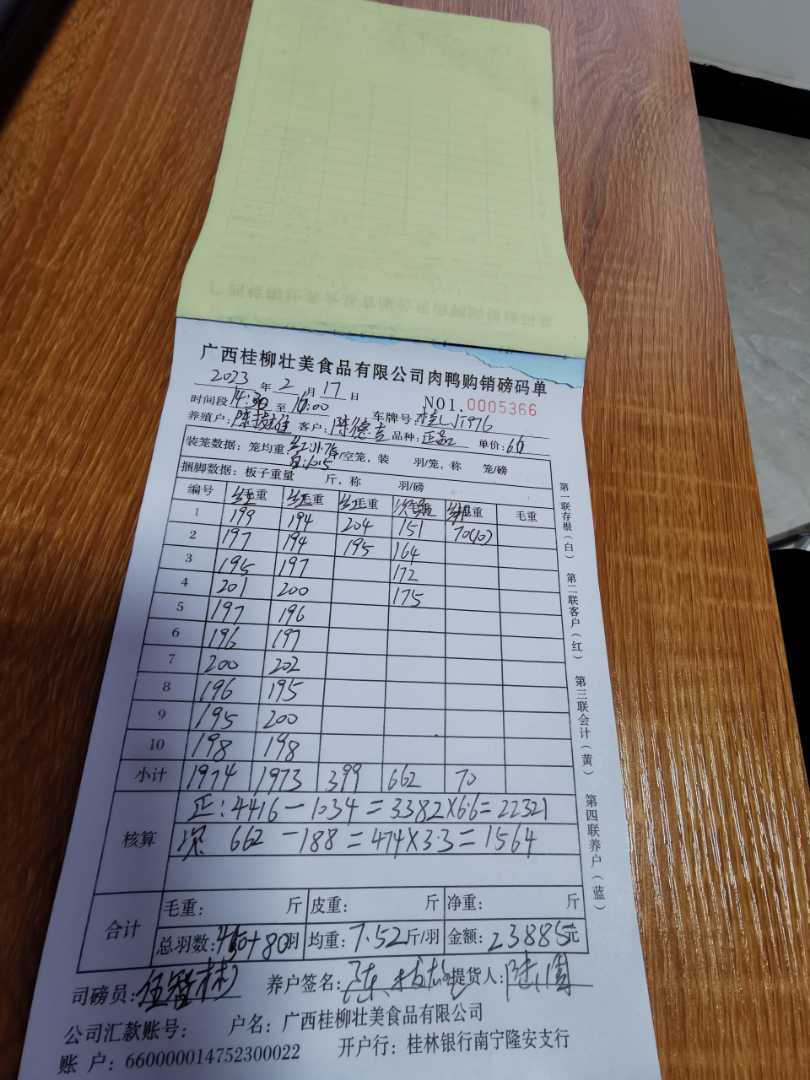 广西桂柳壮美食品有限公司肉鸭购销磅码单
2023 年 2 月 17 日 NO1.0005366
时间段 14:30 至 16:00 车牌号:
养殖户: 客户:陈德吉 品种:正品 单价:6.6
装笼数据:笼均重: /空笼,装 羽/笼,称 笼/磅
捆脚数据:板子重量 斤,称 羽/磅
编号 正毛重 正毛重 正毛重 次毛重 毛重 毛重
1 199 194 204 151 70(10)
2 197 194 195 164
3 195 197 172
4 201 200 175
5 197 196
6 196 197
7 200 202
8 196 195
9 195 200
10 198 198
小计 1974 1973 399 662 70
核算 正:4416-1034=3382×6.6=22321
次 662-188=474×3.3=1564
合计 毛重: 斤 皮重: 斤 净重: 斤
总羽数:450+80羽 均重:7.52斤/羽 金额:23885元
司磅员: 养户签名: 提货人:
公司汇款账号: 户名:广西桂柳壮美食品有限公司
账 户:660000014752300022 开户行:桂林银行南宁隆安支行
第一联存根(白) 第二联客户(红) 第三联会计(黄) 第四联养户(蓝)